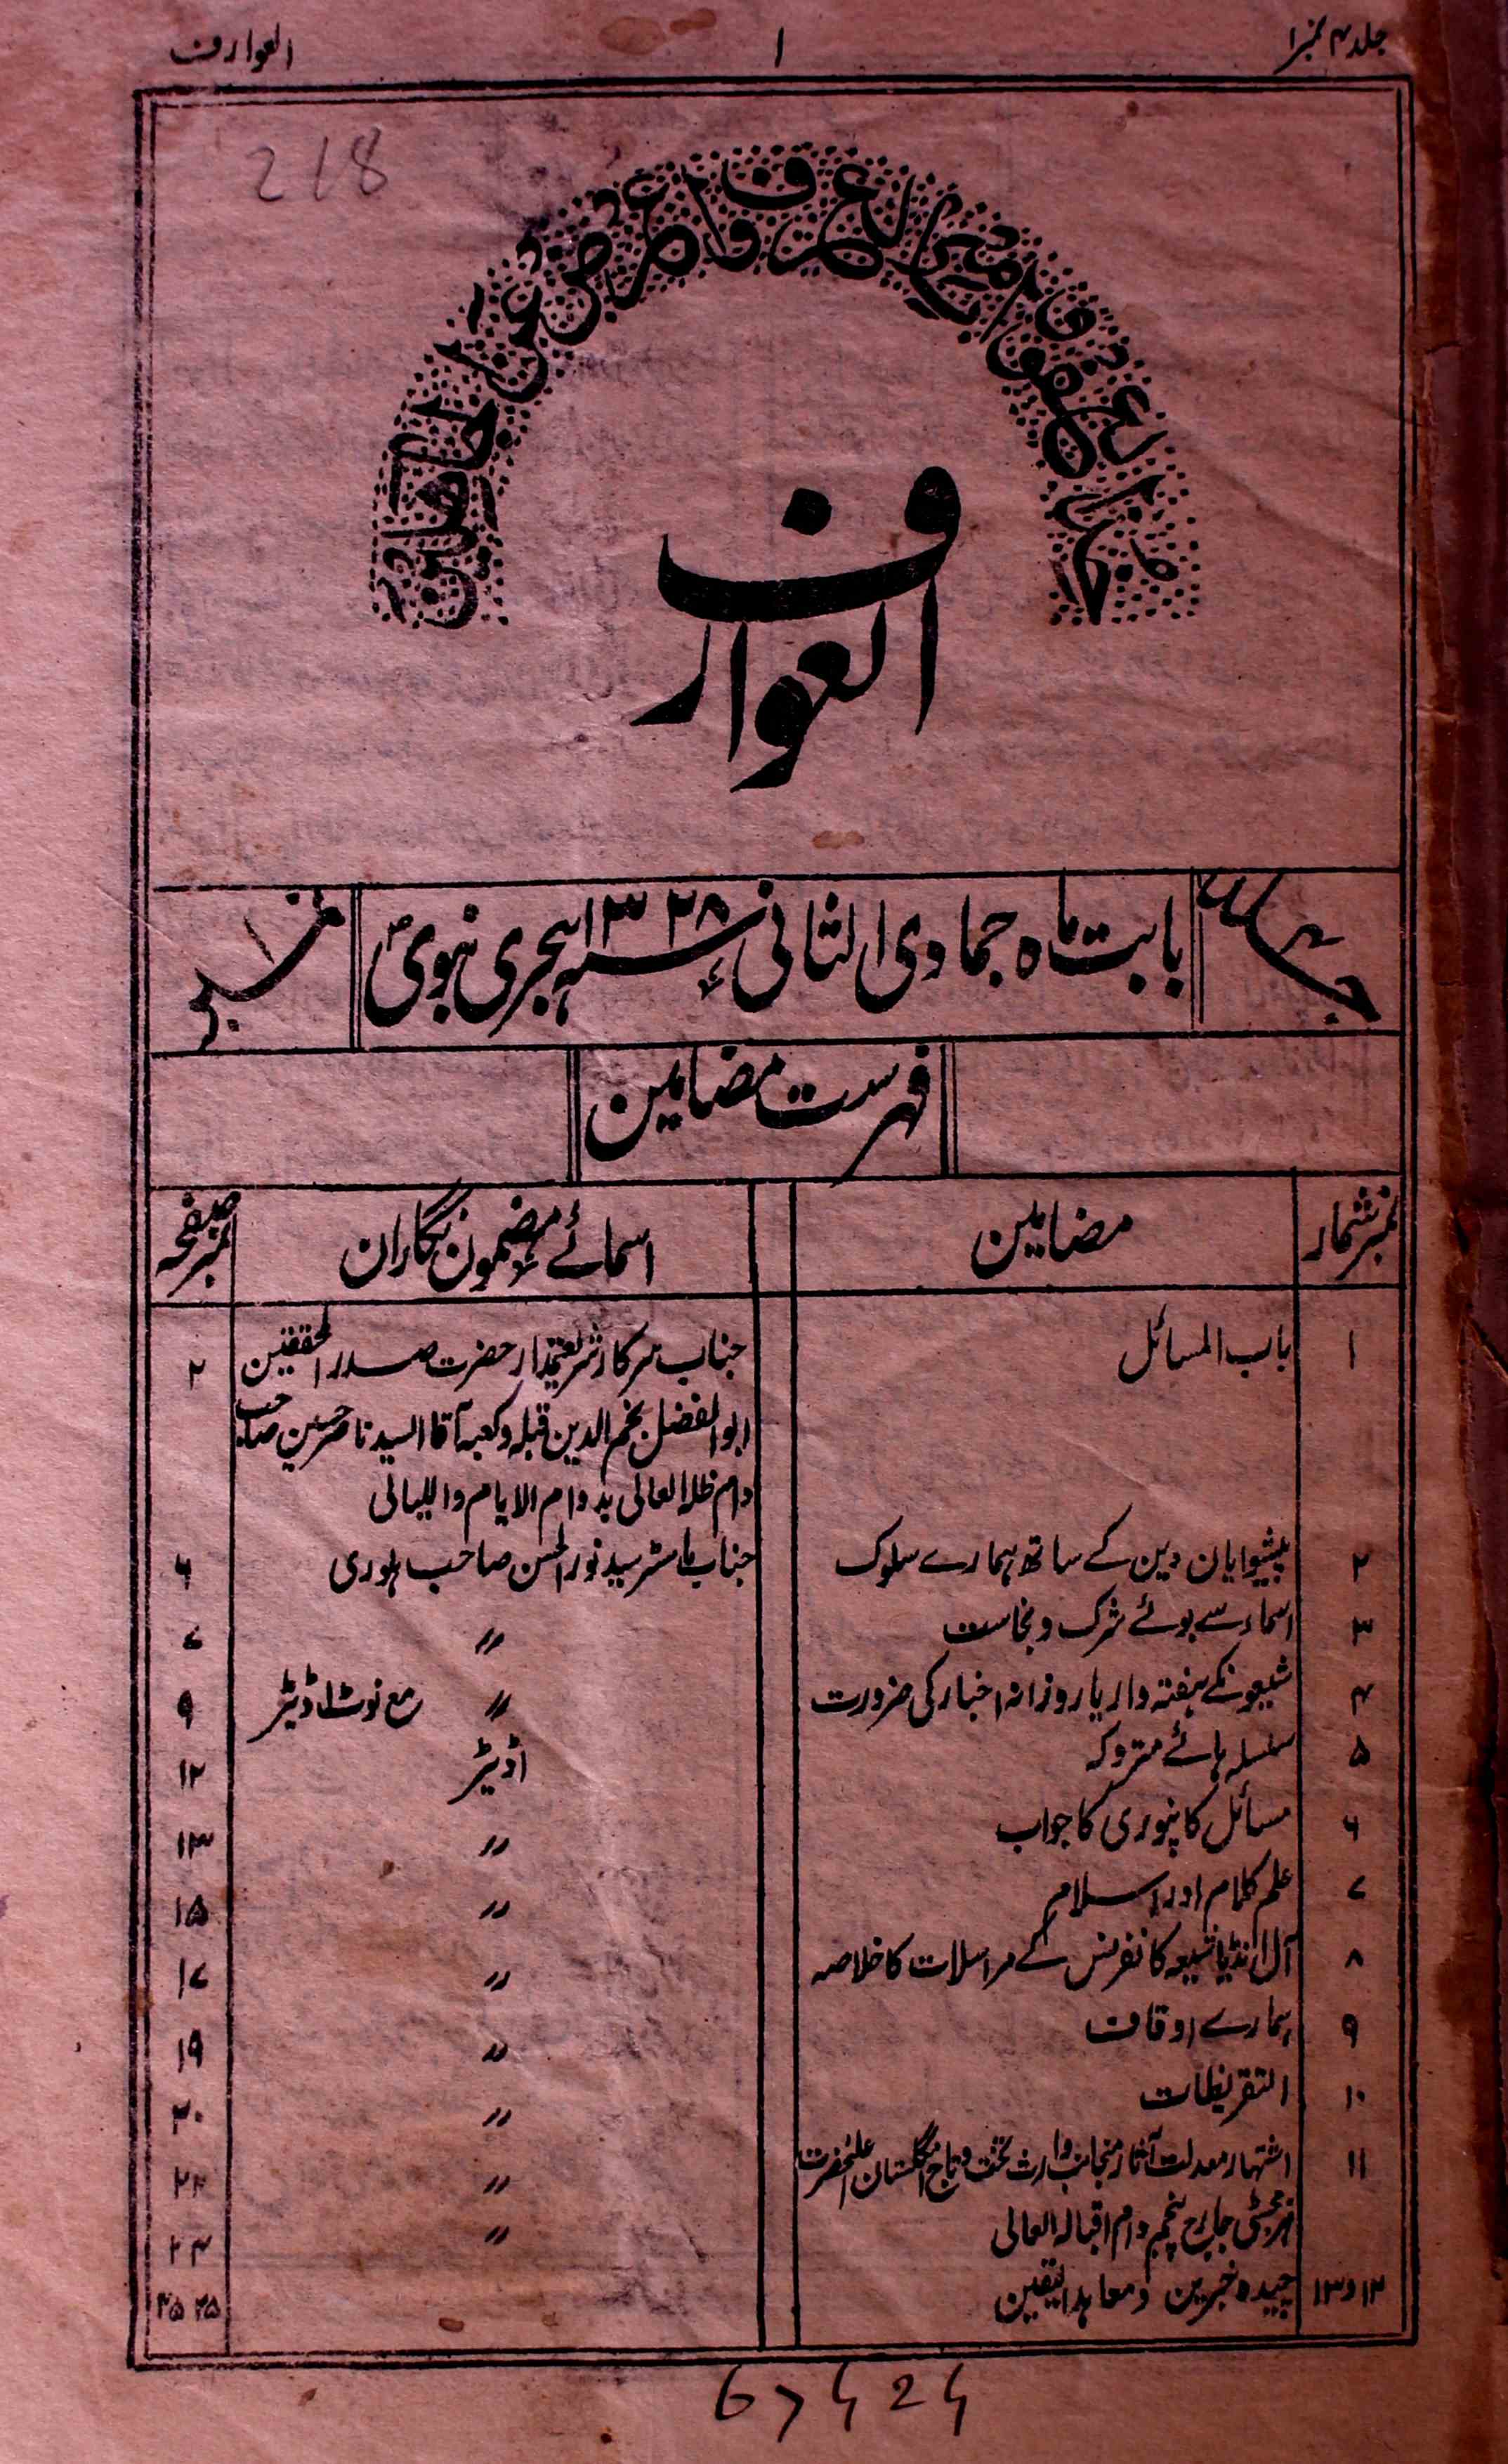 جلد ۴ نمبر ۱
۱
العوارف
218
خذ العفو وامر بالعرف واعرض عن الجاهلين
العوارف
جلد ۴
بابت ماہ جمادی الثانی ۱۳۲۸ ہجری نبوی
نمبر ۱
فہرست مضامین
نمبر شمار مضامین اسمائے مضمون نگاران نمبر صفحہ
۱ باب المسائل جناب سرکار شریعتمدار حضرت صدر المحققین ۲
ابو الفضل نجم الدین قبلہ و کعبہ آقا السید ناصر حسین صاحب
دام ظلہ العالی بدوام الایام واللیالی
۲ پیشوایان دین کے ساتھ ہمارے سلوک جناب ماسٹر سید نور الحسن صاحب ۶
۳ اسماء سے بوئے شرک و نجاست // ۷
۴ شیعونکے ہفتہ وار یا روزانہ اخبار کی ضرورت // مع نوٹ اڈیٹر ۹
۵ سلسلہ ہائے متروکہ اڈیٹر ۱۲
۶ مسائل کانپوری کا جواب // ۱۳
۷ علم کلام اور اسلام // ۱۵
۸ آل انڈیا شیعہ کانفرنس کے مراسلات کا خلاصہ // ۱۷
۹ ہمارے اوقاف // ۱۹
۱۰ التقریظات // ۲۰
۱۱ اشتہار معدلت آثار منجانب وارث تخت و تاج انگلستان اعلیحضرت // ۲۲
ہز مجسٹی جارج پنجم دام اقبالہ العالی // ۲۴
۱۲ و ۱۳ چیدہ خبرین و معاہد الیقین ۲۵
67424